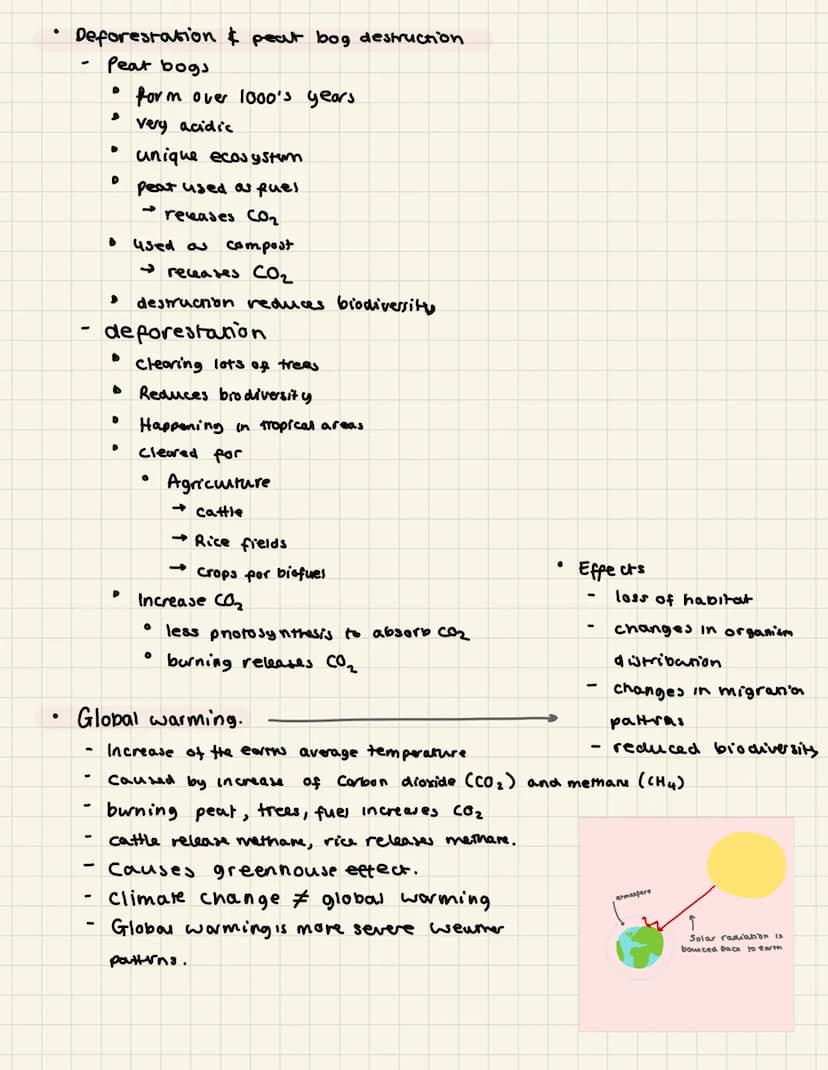 • Deforestation & peat bog destruction
- Peat bogs
• form over 1000's years
• very acidic
• unique ecosystem
• peat used as fuel
→ releases CO₂
• used as compost
→ releases CO₂
• destruction reduces biodiversity
- deforestation
• Clearing lots of trees
• Reduces biodiversity
• Happening in tropical areas
• Cleared for
• Agriculture
→ Cattle
→ Rice fields
→ Crops for biofuel
• Increase CO₂
• less photosynthesis to absorb CO₂
• burning releases CO₂
• Effects
- loss of habitat
- changes in organism
distribution
- changes in migration
patterns
- reduced biodiversity
• Global warming.
- Increase of the earths average temperature
- Caused by increase of Carbon dioxide (CO₂) and methane (CH₄)
- burning peat, trees, fuel increases CO₂
- cattle release methane, rice releases methane.
- Causes greenhouse effect.
- Climate change ≠ global warming
- Global warming is more severe weather
patterns.
atmospere
Solar radiation is
bounced back to earth